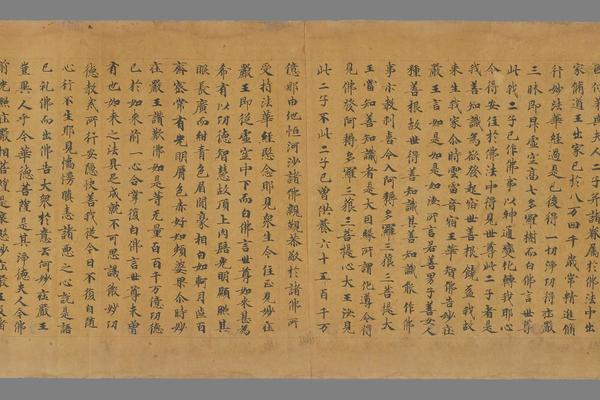 國付弟與夫人二子并諸眷屬於佛法中出
家脩道王出家已於八万四千歲常精進脩
行妙法華經過是已後得一切淨功德莊嚴
三昧即昇虛空高七多羅樹而白佛言世尊
此我二子已作佛事以神通變化轉我耶心
令得安住於佛法中得見世尊此二子者是
我善知識為欲發起宿世善根饒益我故
来生我家尒時雲雷音宿王華智佛告妙莊
嚴王言如是如是如汝所言若善男子善女人
種善根故世世得善知識其善知識能作佛
事示教利喜令入阿耨多羅三藐三菩提大
王當知善知識者是大因緣所謂化導令得
見佛發阿耨多羅三藐三菩提心大王汝見
此二子不此二子已曾供養六十五百千万
億那由他恒河沙諸佛親覲恭敬於諸佛所
受持法華經愍念耶見衆生令住正見妙莊
嚴王即從虛空中下而白佛言世尊如来甚
希有以功德智慧故頂上肉髻光明顯照其
眼長廣而紺青色眉間豪相白如珂月齒白
齊密常有光明脣色赤好如頻婆菓尒時妙
莊嚴王讚歎佛如是等无量百千万億功德
已於如来前一心合掌復白佛言世尊未曾
有也如来之法具足成就不可思議微妙功
德教戒所行安隱快善我從今日不復自隨
心行不生耶見憍慢瞋恚諸惡之心說是語
已礼佛而出佛告大衆於意云何妙莊嚴王
豈異人乎今華德菩薩是其淨德夫人今佛
前光照莊嚴相菩薩是